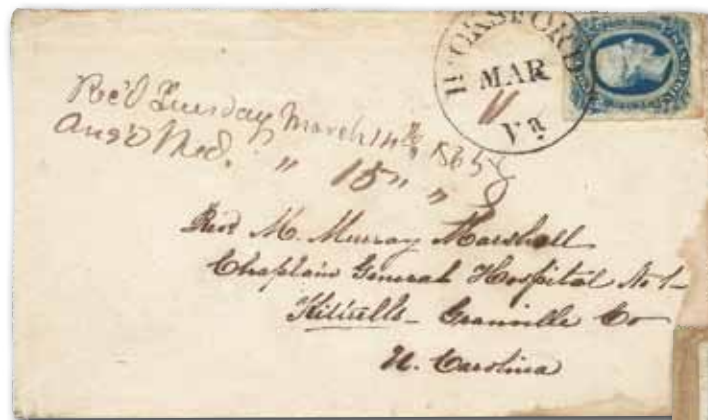 HICKSFORD
MAR
11
Va
Rec'd Tuesday March 14th 1865
Ans'd Wed. " 15 " "
Rev M. Murray Marshall
Chaplain General Hospital No 1-
Kittrells - Granville Co
N. Carolina